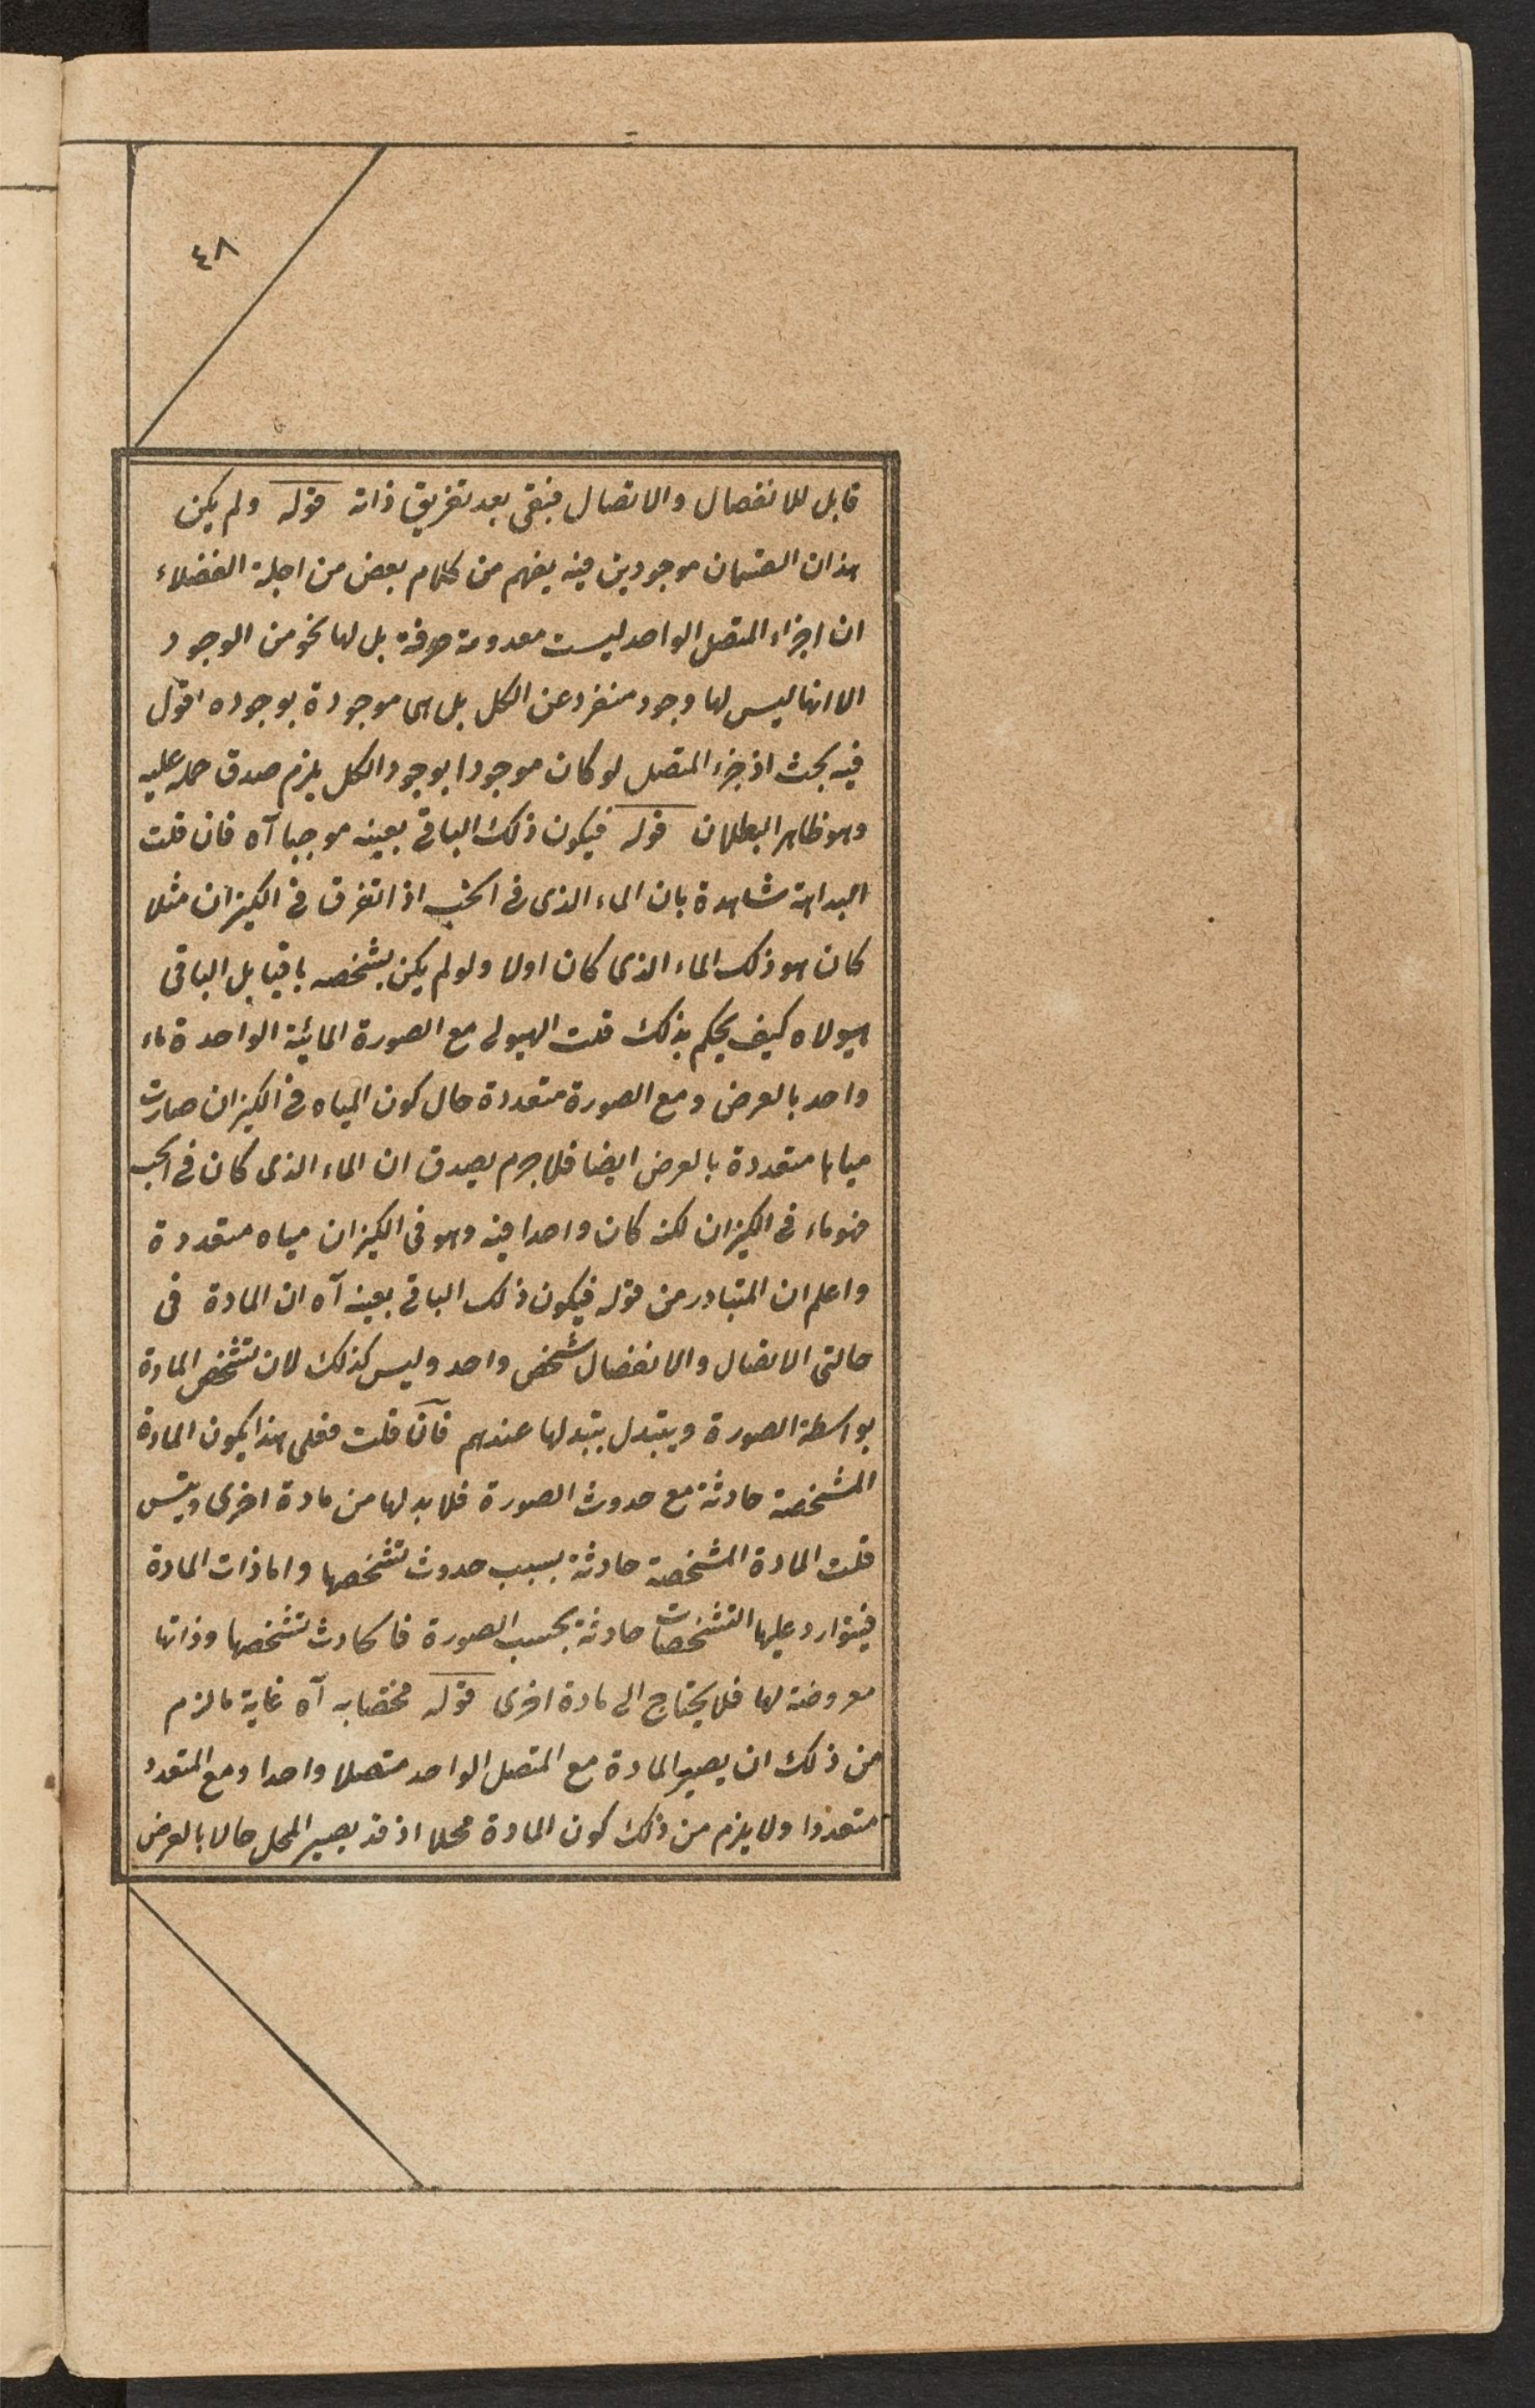 ٤٨
قابل للانفصال والاتصال فبقى بعد تفريق ذاته قوله ولم يكن
هذان القسمان موجودين فيه يفهم من كلام بعض من اجلة الفضلاء
ان اجزاء المتصل الواحد ليست معدومة صرفة بل لها نحو من الوجود
الا انها ليس لها وجود منفرد عن الكل بل هى موجودة بوجوده اقول
فيه بحث اذ جزء المتصل لو كان موجودا بوجود الكل يلزم صدق حمله عليه
وهو ظاهر البطلان قوله فيكون ذلك الباقى بعينه موجبا آه فان قلت
البداهة شاهدة بان الماء الذى فى الحب اذا تفرق فى الكيزان مثلا
كان هو ذلك الماء الذى كان اولا ولو لم يكن بشخصه باقيا بل الباقى
هيولاه كيف يحكم بذلك قلت الهيولى مع الصورة المائية الواحدة ماء
واحد بالعرض ومع الصورة متعددة حال كون المياه فى الكيزان صارت
مياها متعددة بالعرض ايضا فلا جرم يصدق ان الماء الذى كان فى الحب
فهو ماء فى الكيزان لكنه كان واحدا فيه وهو فى الكيزان مياه متعددة
واعلم ان المتبادر من قوله فيكون ذلك الباقى بعينه آه ان المادة فى
حالتى الاتصال والانفصال شخص واحد وليس كذلك لان تشخص المادة
بواسطة الصورة ويتبدل بتبدلها عندهم فان قلت فعلى هذا يكون المادة
المشخصة حادثة مع حدوث الصورة فلا بد لها من مادة اخرى ويتس
قلت المادة المشخصة حادثة بسبب حدوث تشخصها واما ذات المادة
فيتوارد عليها التشخصات حادثة بحسب الصورة فالحادث تشخصها وذاتها
معروضة لها فلا يحتاج الى مادة اخرى قوله مختصا به آه غاية ما لزم
من ذلك ان يصير المادة مع المتصل الواحد متصلا واحدا ومع المتعدد
متعددا ولا يلزم من ذلك كون المادة محلا اذ قد يصير المحل حالا بالعرض